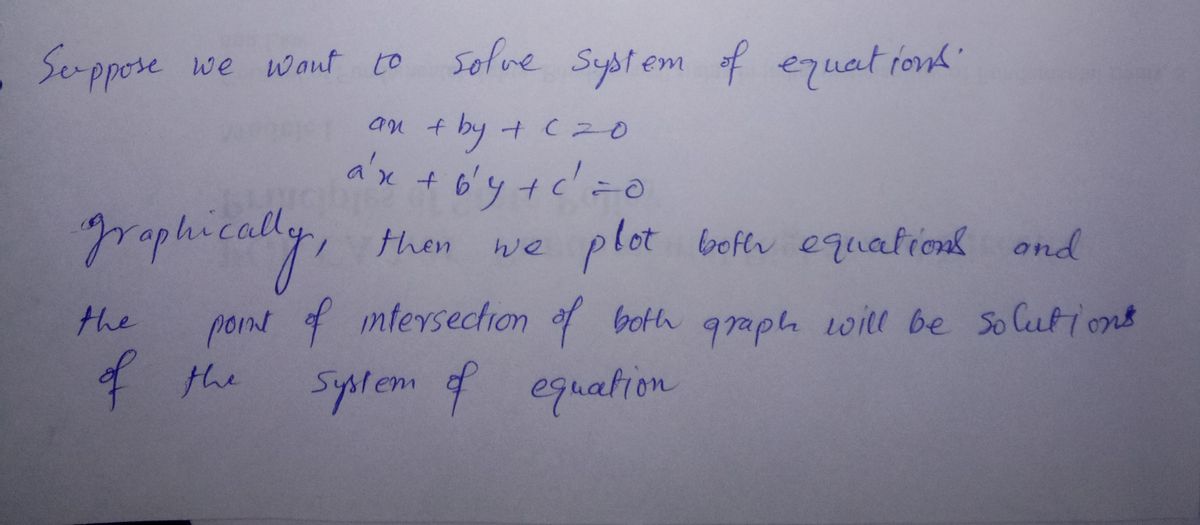 Suppose we want to solve system of equations.
ax + by + c = 0
a'x + b'y + c' = 0
graphically, then we plot both equations and
the point of intersection of both graph will be solutions
of the system of equation